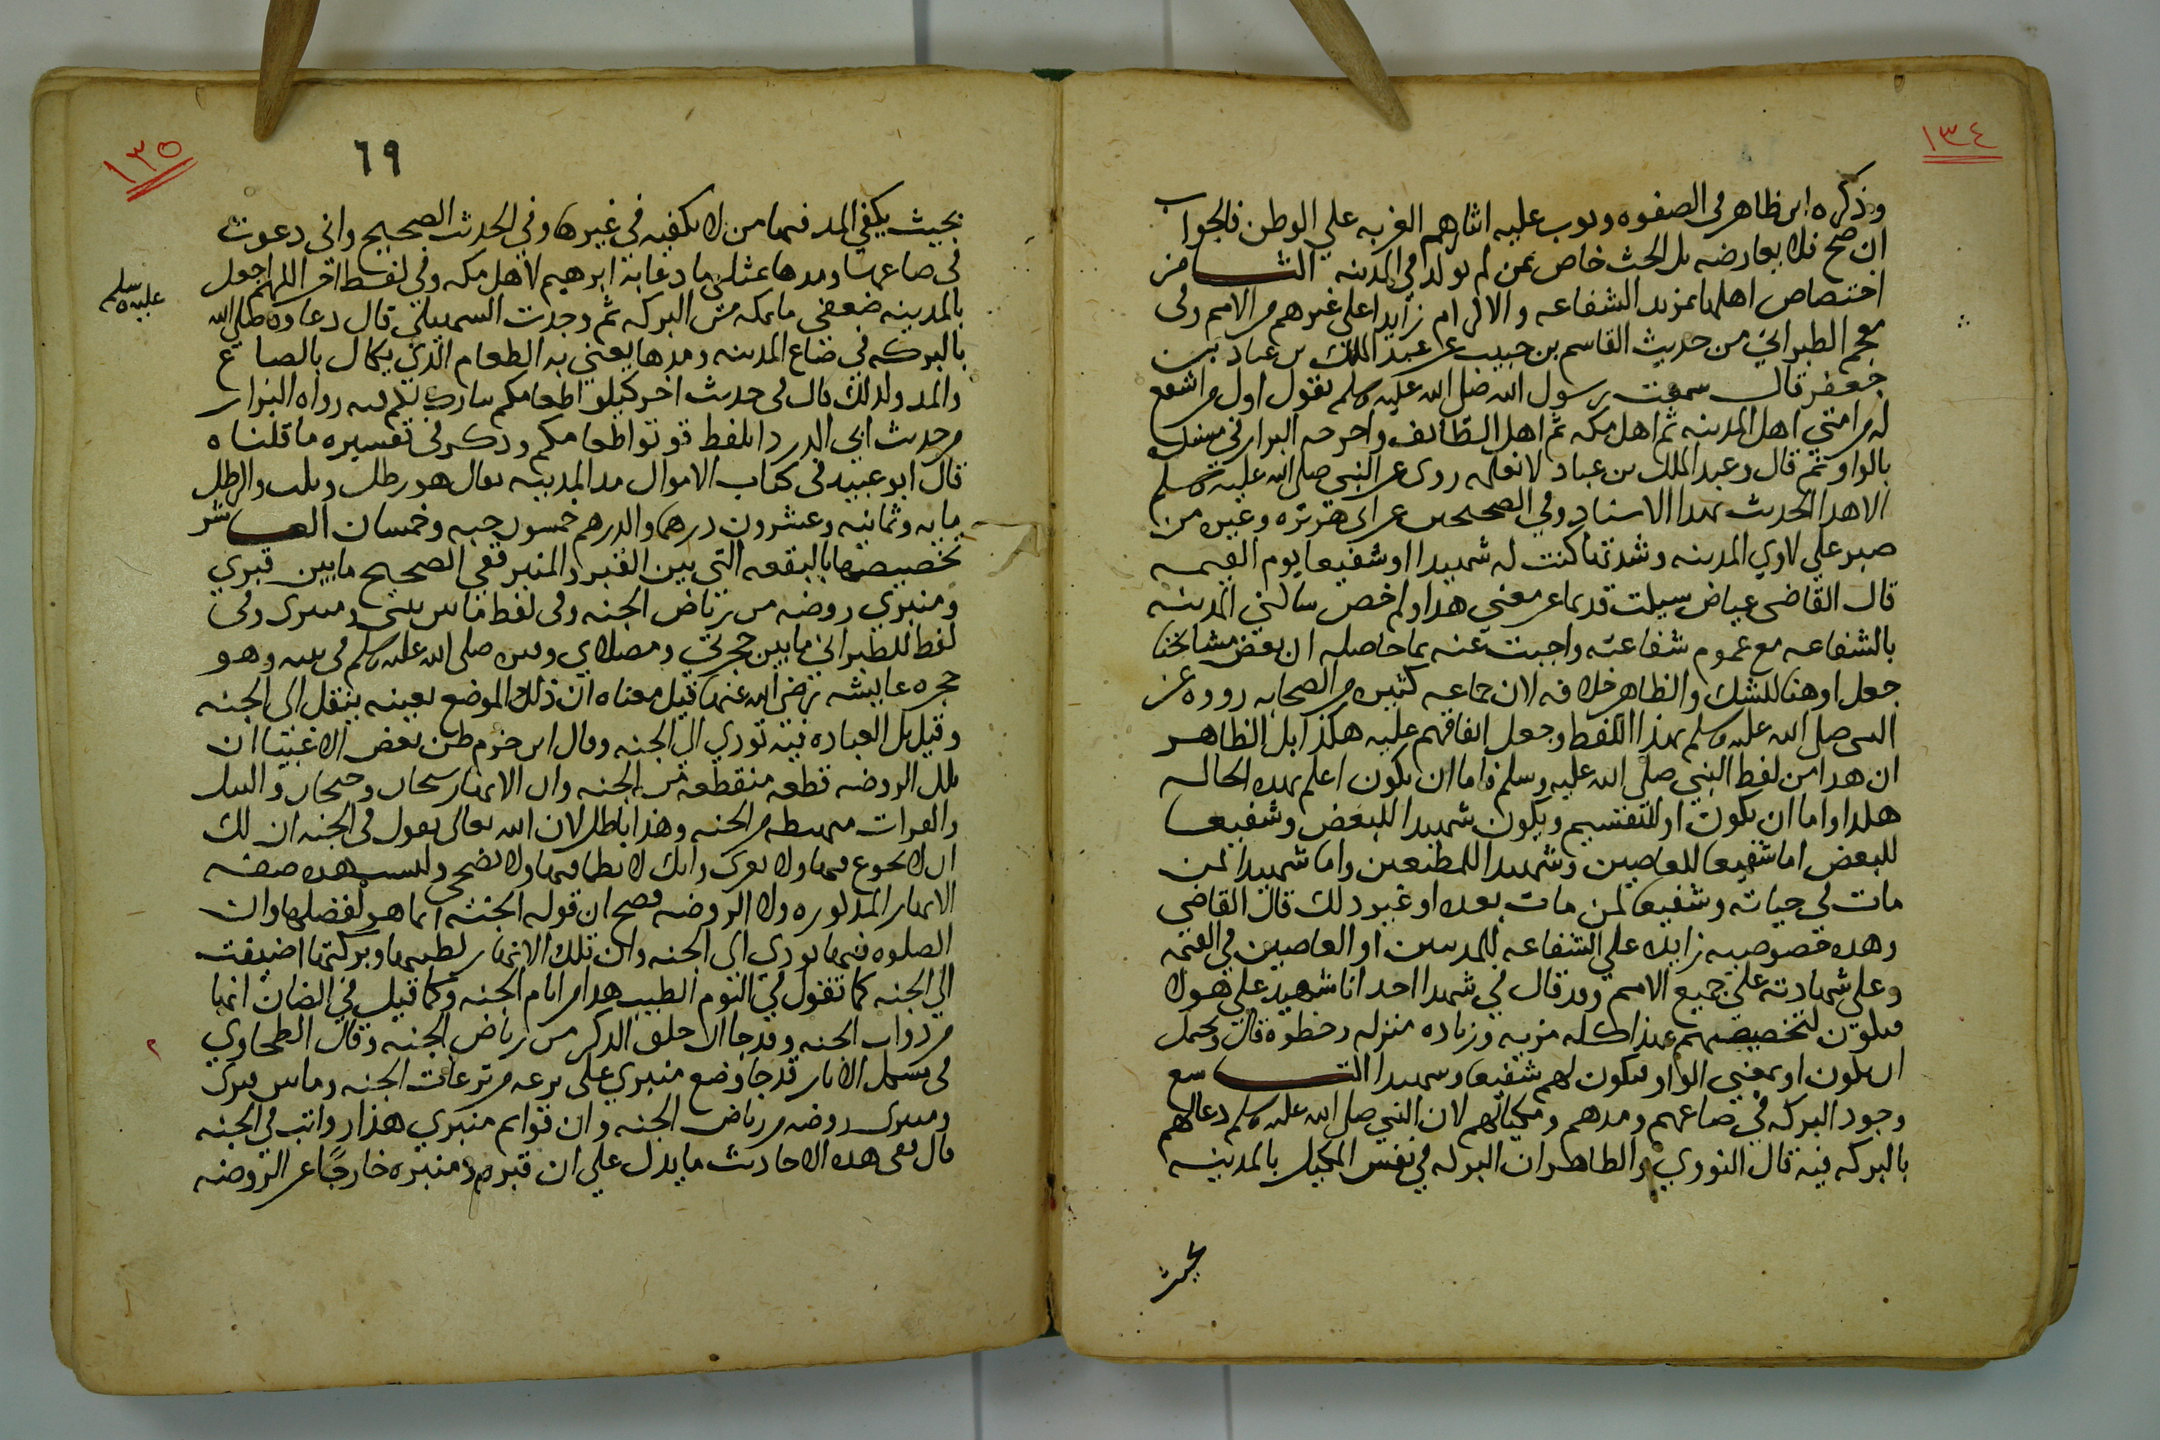 ١٣٤
وذكره ابن طاهر في الصفوه وبوب عليه ايثارهم الغربه علي الوطن فالجواب
ان صح فلا يعارضه بل الحث خاص بمن لم يولد في المدينه الثامن
اختصاص اهلها بمزيد الشفاعه والاكرام زايدا علي غيرهم من الامم وفي
معجم الطبراني من حديث القاسم بن حبيب عن عبد الملك بن عباد بن
جعفر قال سمعت رسول الله صلى الله عليه وسلم يقول اول من اشفع
له من امتي اهل المدينه ثم اهل مكه ثم اهل الطائف واخرجه البزار في مسنده
بالواو ثم قال وعبد الملك بن عباد لا نعلمه روى عن النبي صلى الله عليه وسلم
الا هذا الحديث بهذا الاسناد وفي الصحيحين عن ابي هريره وغيره من
صبر علي لاوي المدينه وشدتها كنت له شهيدا او شفيعا يوم القيمه
قال القاضي عياض سيلت قديما عن معني هذا ولم خص ساكني المدينه
بالشفاعه مع عموم شفاعته واجبت عنه بما حاصله ان بعض مشايخنا
جعل او هنا للشك والظاهر خلافه لان جماعه كثيره من الصحابه رووه عن
النبي صلى الله عليه وسلم بهذا اللفظ وجعل اتفاقهم عليه هكذا بل الظاهر
ان هذا من لفظ النبي صلى الله عليه وسلم فاما ان يكون اعلم بهذه الحاله
هكذا واما ان يكون او للتقسيم ويكون شهيدا للبعض وشفيعا
للبعض اما شفيعا للعاصين وشهيدا للمطيعين واما شهيدا لمن
مات في حياته وشفيعا لمن مات بعده او غير ذلك قال القاضي
وهذه خصوصيه زايده علي الشفاعه للمذنبين او العاصين في القيمه
وعلي شهادته علي جميع الامم وقد قال في شهدا احد انا شهيد علي هولا
فيكون لتخصيصهم بهذا كله مزيه وزياده منزله وحظوه قال ويحتمل
ان يكون او بمعني الواو فيكون لهم شفيعا وشهيدا التاسع
وجود البركه في صاعهم ومدهم ومكيالهم لان النبي صلى الله عليه وسلم دعا لهم
بالبركه فيه قال النووي والظاهر ان البركه في نفس المكيل بالمدينه
بحيث
١٣٥
٦٩
بحيث يكفي المد فيها من لا يكفيه في غيرها وفي الحديث الصحيح واني دعوت
في صاعها ومدها بمثلي ما دعا به ابرهيم لاهل مكه وفي لفظ اخر اللهم اجعل
بالمدينه ضعفي ما بمكه من البركه ثم وجدت السهيلي قال دعاوه صلى الله
عليه وسلم
بالبركه في صاع المدينه ومدها يعني به الطعام الذي يكال بالصاع
والمد ولذلك قال في حديث اخر كيلوا طعامكم يبارك لكم فيه رواه البزار
من حديث ابي الدردا بلفظ قوتوا طعامكم وذكر في تفسيره ما قلناه
قال ابو عبيد في كتاب الاموال مد المدينه يقال هو رطل وثلث والرطل
مايه وثمانيه وعشرون درهما والدرهم خمسون حبه وخمسان العاشر
تخصيصها بالبقعه التي بين القبر والمنبر ففي الصحيح ما بين قبري
ومنبري روضه من رياض الجنه وفي لفظ ما بين بيتي ومنبري وفي
لفظ للطبراني ما بين حجرتي ومصلاي وقبره صلى الله عليه وسلم في بيته وهو
حجره عايشه رضي الله عنها قيل معناه ان ذلك الموضع بعينه ينقل الى الجنه
وقيل بل العباده فيه تودي الى الجنه وقال ابن حزم ظن بعض الاغبيا ان
تلك الروضه قطعه منقطعه من الجنه وان الانهار سيحان وجيحان والنيل
والفرات مهبطه من الجنه وهذا باطل لان الله تعالى يقول في الجنه ان لك
ان لا تجوع فيها ولا تعرى وانك لا تظما فيها ولا تضحى وليست هذه صفه
الانهار المذكوره ولا الروضه فصح ان قوله الجنه انما هو لفضلها وان
الصلوه فيها تودي الى الجنه وان تلك الانهار لطيبها وبركتها اضيفت
الي الجنه كما تقول في اليوم الطيب هذا من ايام الجنه وكما قيل في الضان انها
من دواب الجنه وقد جا الا حلق الذكر من رياض الجنه وقال الطحاوي
في مشكل الاثار قد جا وضع منبري علي ترعه من ترعات الجنه وما بين قبري
ومنبري روضه من رياض الجنه وان قوايم منبري هذا رواتب في الجنه
قال ففي هذه الاحاديث ما يدل علي ان قبره ومنبره خارجا عن الروضه